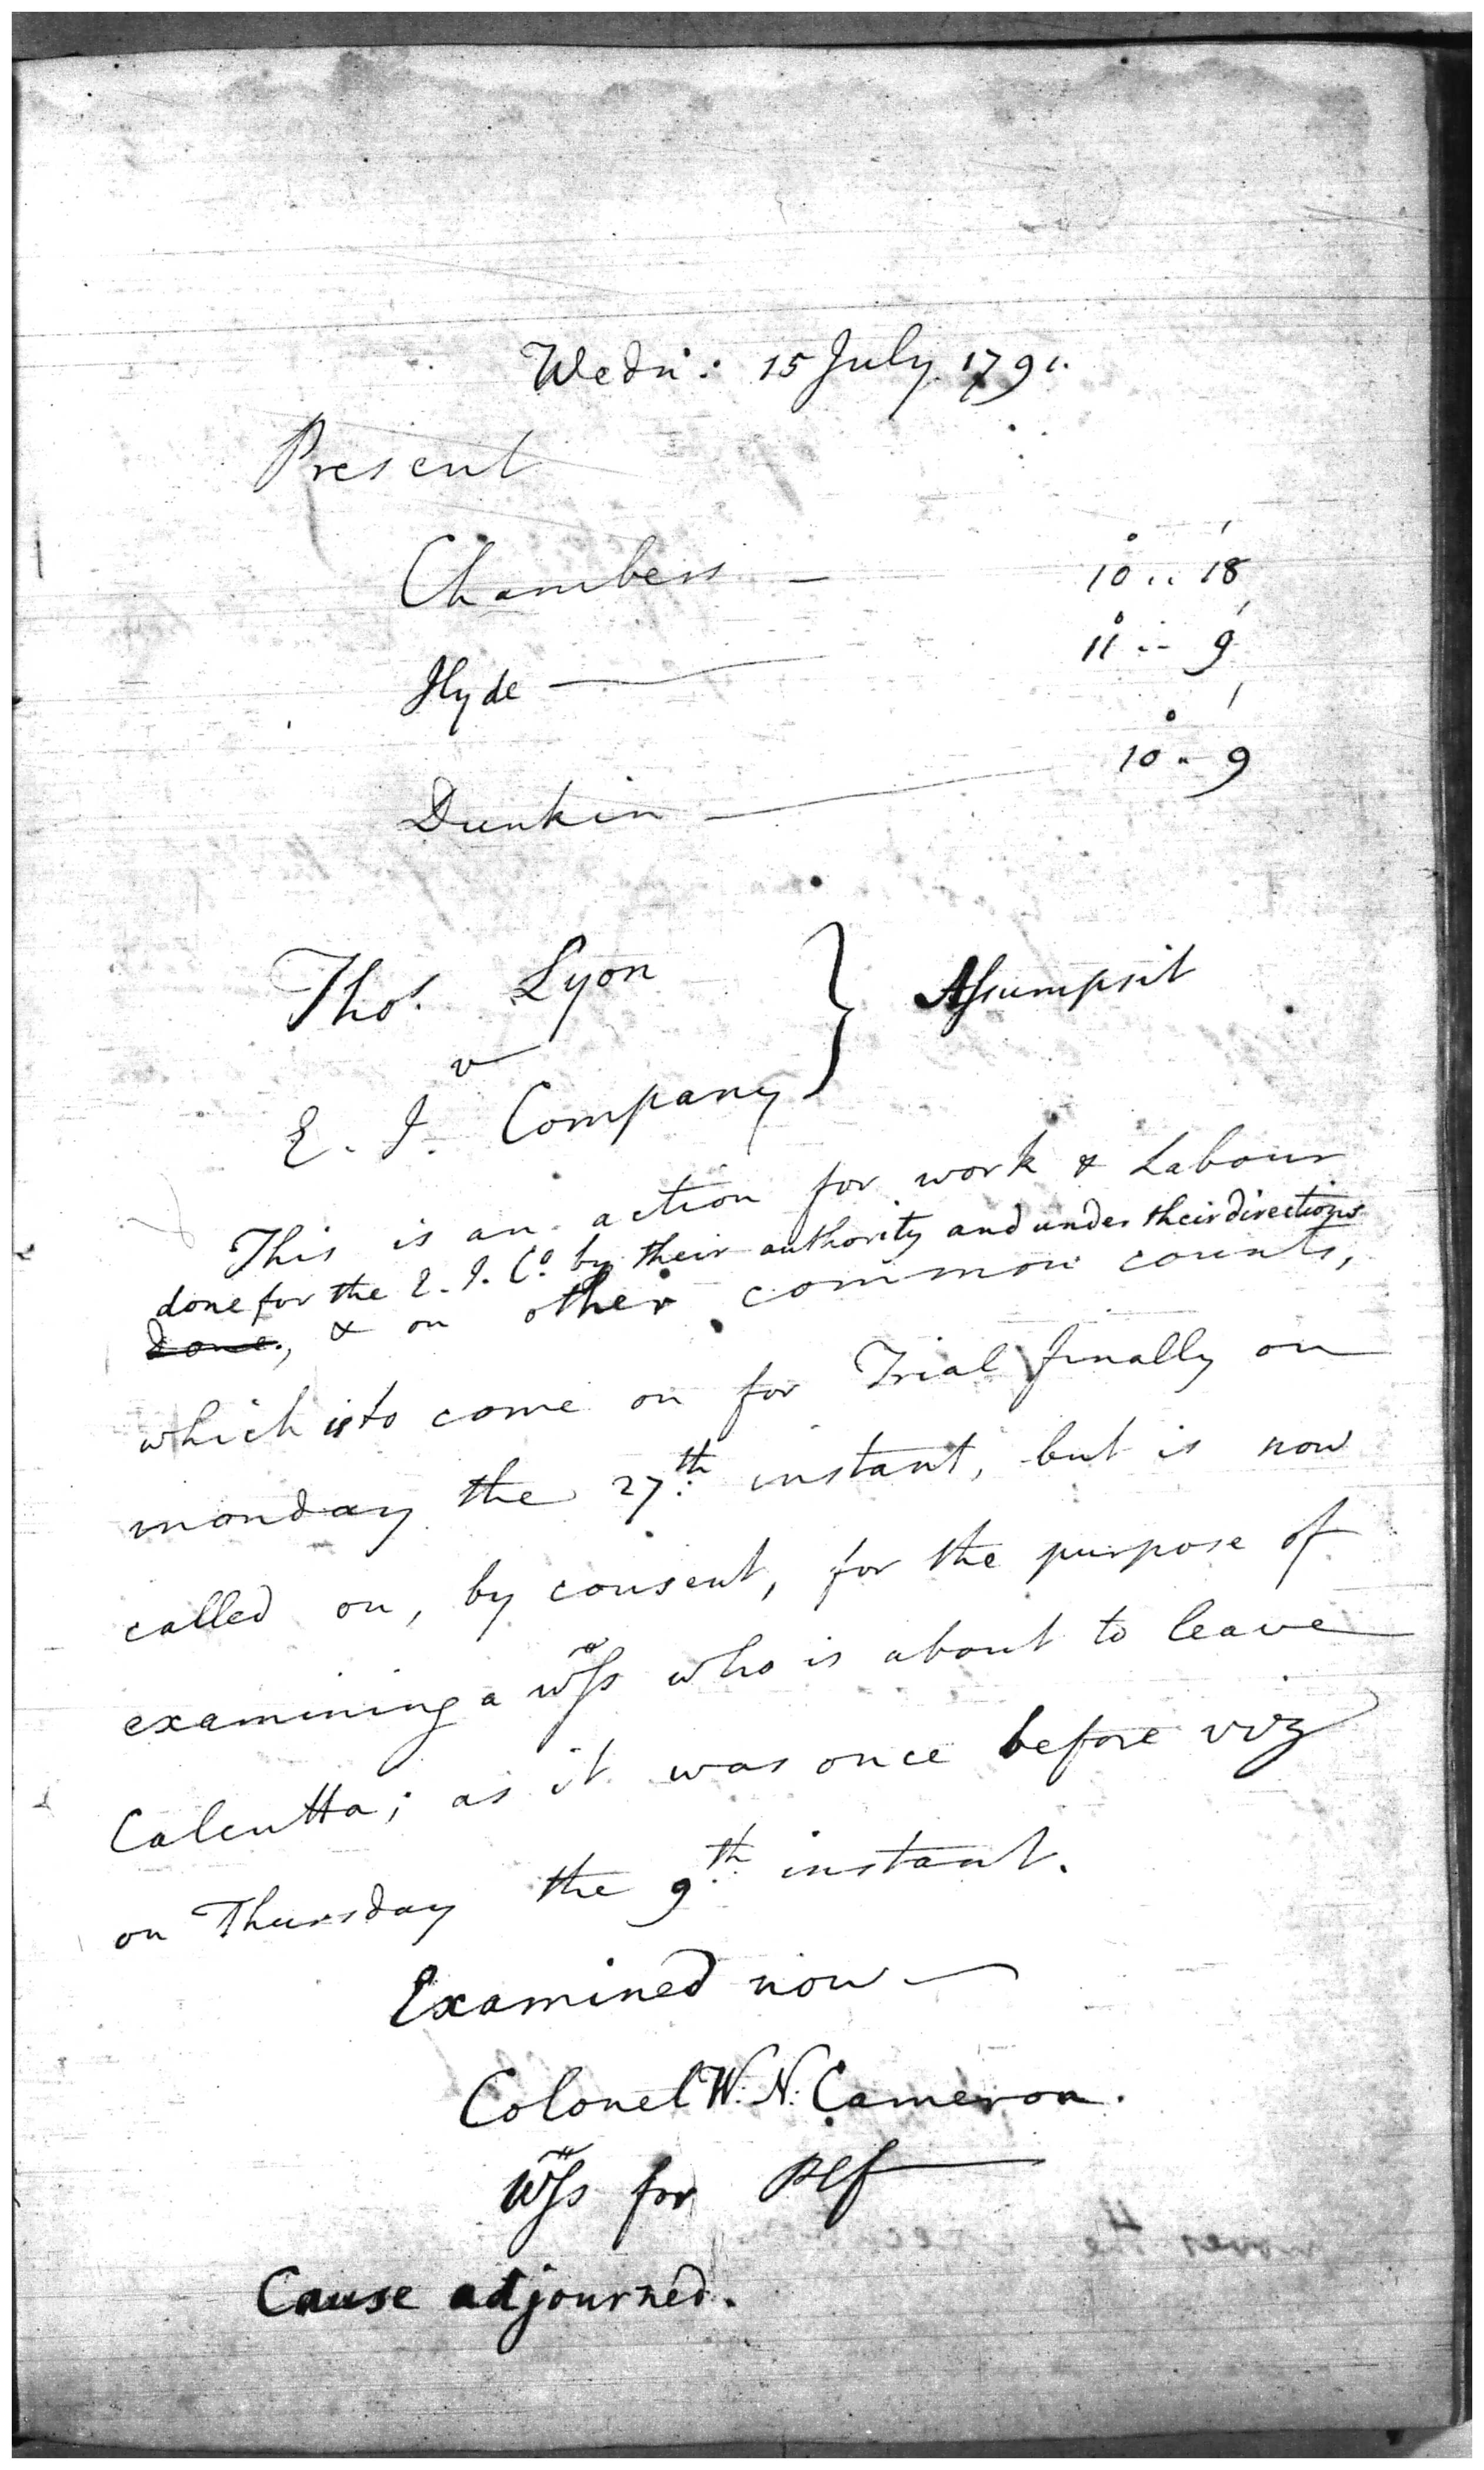 Wedn: 15 July 1791.
Present
Chambers — 10° .. 18'
Hyde — 11° .. 9'
Dunkin — 10° .. 9'
Thos. Lyon } Assumpsit
v
E. I. Company
This is an action for work & Labour
done for the E. I. Co. by their authority and under their directions
done, & on other common counts,
which is to come on for Trial finally on
monday the 27th instant, but is now
called on, by consent, for the purpose of
examining a Wss who is about to leave
Calcutta; as it was once before viz
on Thursday the 9th instant.
Examined now —
Colonel W. N. Cameron.
Wss for Plf —
Cause adjourned.